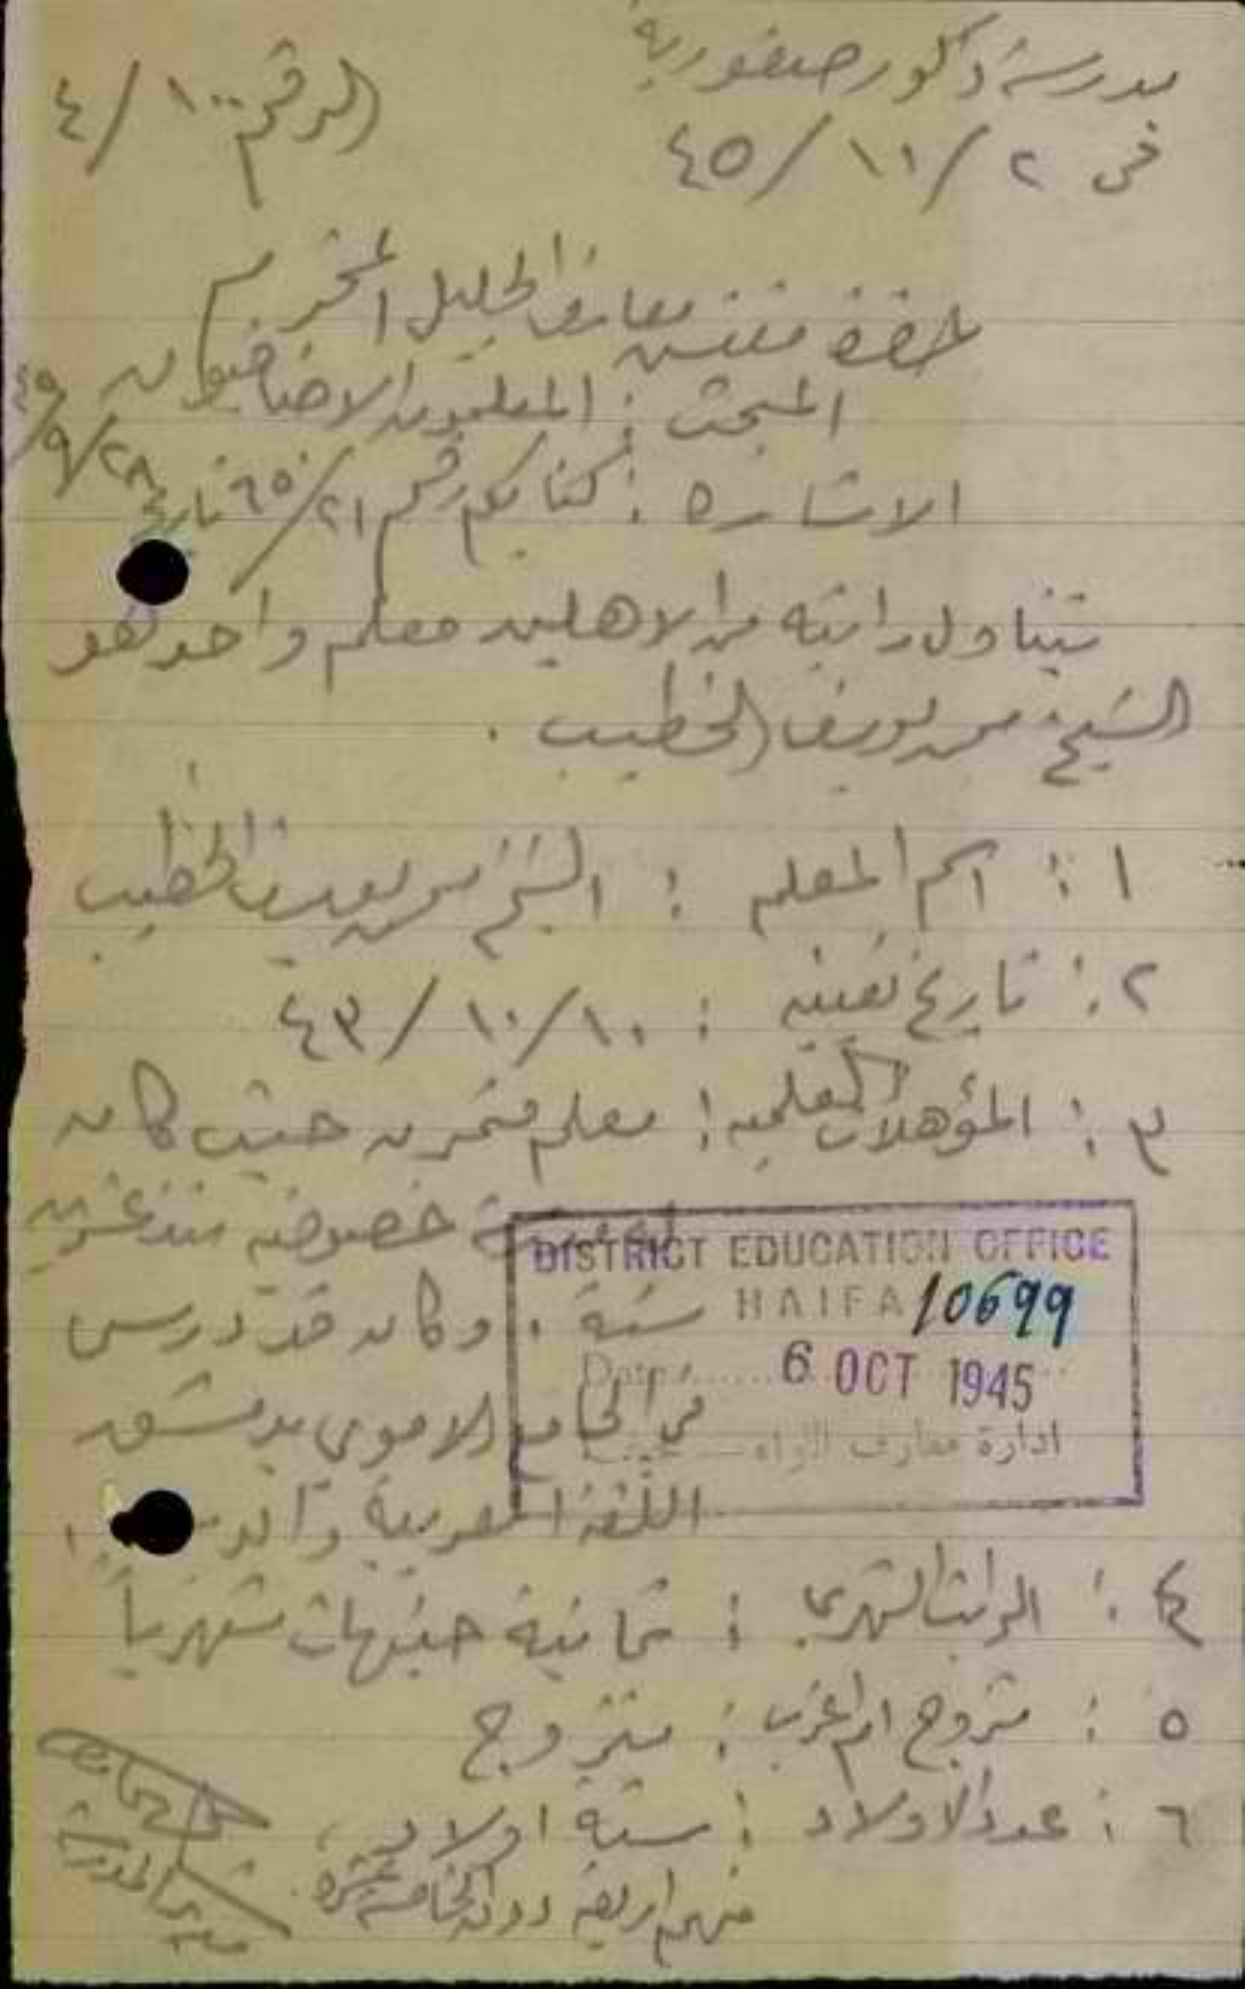 مدرسة ذكور صفورية
الرقم ١٠٠/٤
في ٢/١١/٤٥
حضرة مفتش معارف الجليل المحترم
المبحث: المعلمون الاضافيون
الاشارة: كتابكم رقم ٦٥/٢١ تاريخ ٢٨/٩/٤٥
يتناول راتبه من الاهلين معلم واحد هو
الشيخ محمد يوسف الخطيب.
١: اسم المعلم: الشيخ محمد يوسف الخطيب
٢: تاريخ تعيينه: ١٠/١٠/٤٣
٣: المؤهلات العلمية: معلم متمرن حيث كان
خصوصية منذ عشرين
سنة. وكان قد درس
في الجامع الاموي بدمشق
اللغة العربية
٤: الراتب الشهري: ثمانية جنيهات شهرياً
٥: متزوج ام اعزب: متزوج
٦: عدد الاولاد: ستة اولاد،
منهم اربعة دون الخامسة عشرة.
مدير المدرسة
DISTRICT EDUCATION OFFICE
HAIFA 10699
Date 6 OCT 1945
ادارة معارف اللواء